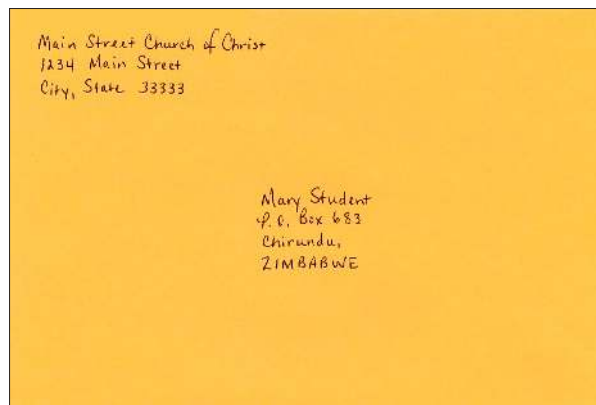 Main Street Church of Christ
1234 Main Street
City, State 33333
Mary Student
P.O. Box 683
Chirundu,
ZIMBABWE